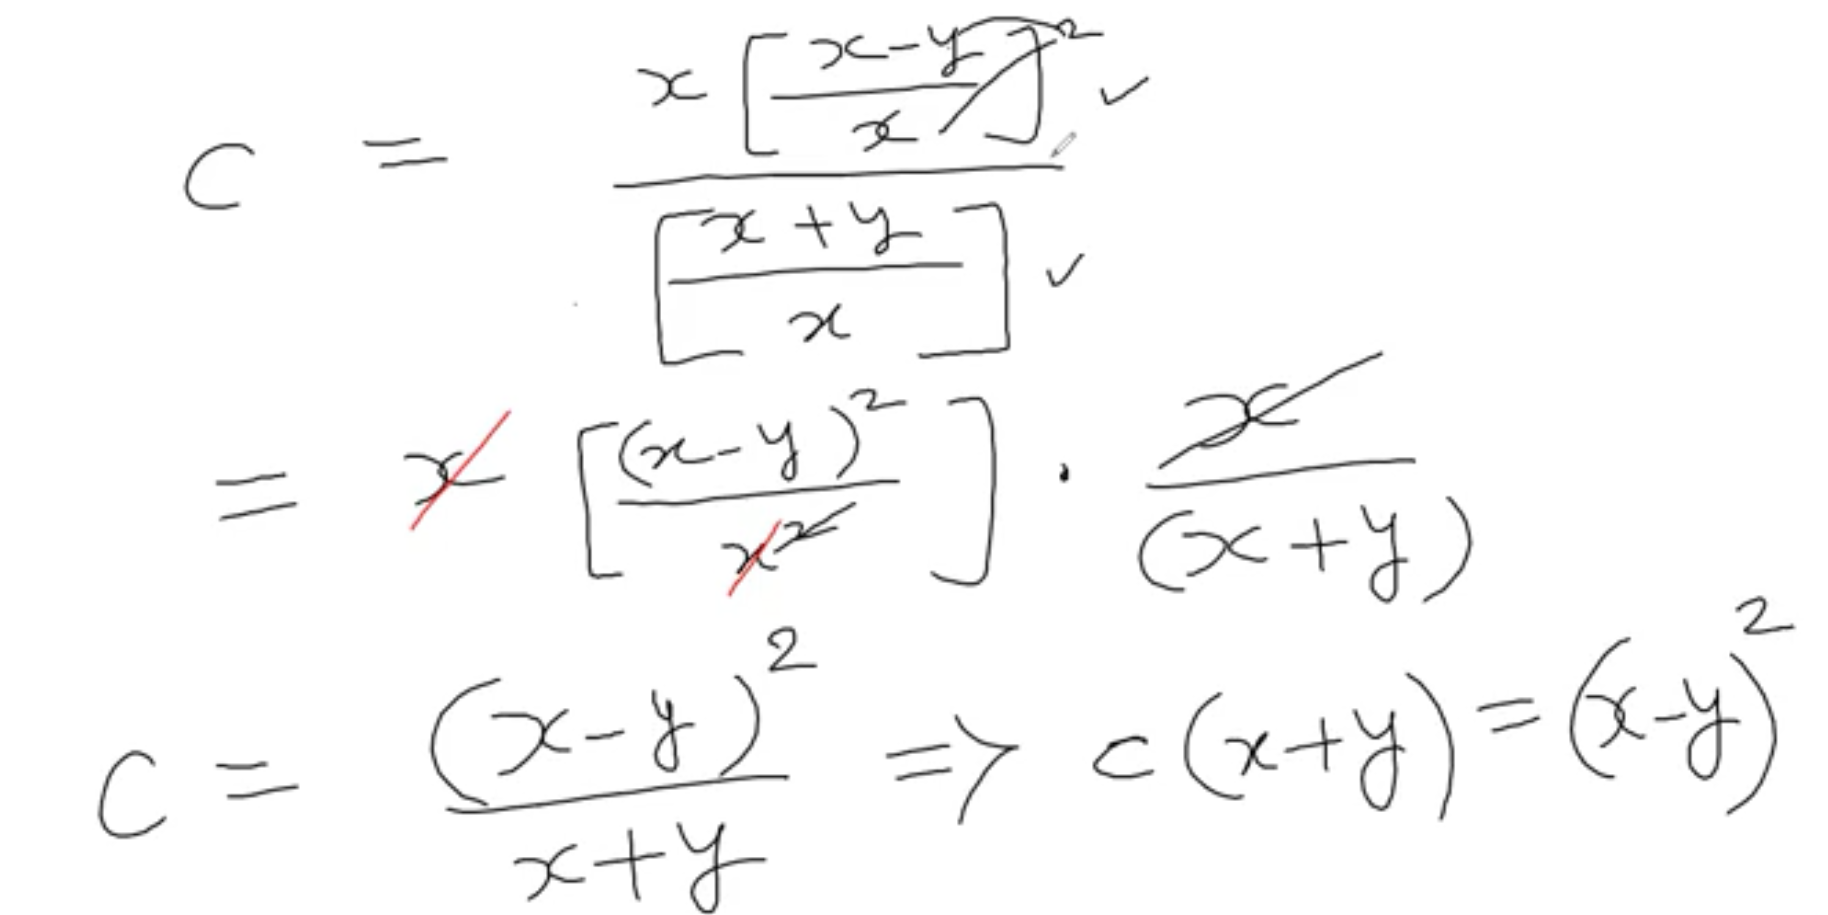 C = x [(x-y)/x]² ✓ / [(x+y)/x] ✓
= x [(x-y)²/x²] · x/(x+y)
C = (x-y)²/(x+y) ⇒ c(x+y) = (x-y)²